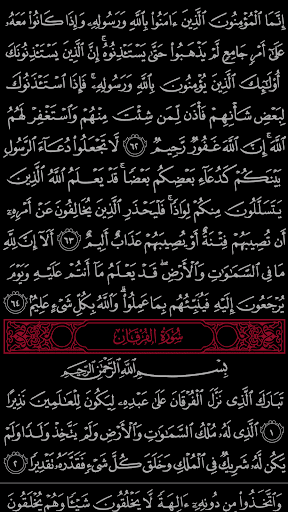 إِنَّمَا ٱلْمُؤْمِنُونَ ٱلَّذِينَ ءَامَنُوا۟ بِٱللَّهِ وَرَسُولِهِۦ وَإِذَا كَانُوا۟ مَعَهُۥ
عَلَىٰٓ أَمْرٍ جَامِعٍ لَّمْ يَذْهَبُوا۟ حَتَّىٰ يَسْتَـْٔذِنُوهُ ۚ إِنَّ ٱلَّذِينَ يَسْتَـْٔذِنُونَكَ
أُو۟لَـٰٓئِكَ ٱلَّذِينَ يُؤْمِنُونَ بِٱللَّهِ وَرَسُولِهِۦ ۚ فَإِذَا ٱسْتَـْٔذَنُوكَ
لِبَعْضِ شَأْنِهِمْ فَأْذَن لِّمَن شِئْتَ مِنْهُمْ وَٱسْتَغْفِرْ لَهُمُ
ٱللَّهَ ۚ إِنَّ ٱللَّهَ غَفُورٌ رَّحِيمٌ ٦٢ لَّا تَجْعَلُوا۟ دُعَآءَ ٱلرَّسُولِ
بَيْنَكُمْ كَدُعَآءِ بَعْضِكُم بَعْضًا ۚ قَدْ يَعْلَمُ ٱللَّهُ ٱلَّذِينَ
يَتَسَلَّلُونَ مِنكُمْ لِوَاذًا ۚ فَلْيَحْذَرِ ٱلَّذِينَ يُخَالِفُونَ عَنْ أَمْرِهِۦٓ
أَن تُصِيبَهُمْ فِتْنَةٌ أَوْ يُصِيبَهُمْ عَذَابٌ أَلِيمٌ ٦٣ أَلَآ إِنَّ لِلَّهِ
مَا فِى ٱلسَّمَـٰوَٰتِ وَٱلْأَرْضِ ۖ قَدْ يَعْلَمُ مَآ أَنتُمْ عَلَيْهِ وَيَوْمَ
يُرْجَعُونَ إِلَيْهِ فَيُنَبِّئُهُم بِمَا عَمِلُوا۟ ۗ وَٱللَّهُ بِكُلِّ شَىْءٍ عَلِيمٌۢ ٦٤
سُورَةُ الفُرْقَان
بِسْمِ ٱللَّهِ ٱلرَّحْمَـٰنِ ٱلرَّحِيمِ
تَبَارَكَ ٱلَّذِى نَزَّلَ ٱلْفُرْقَانَ عَلَىٰ عَبْدِهِۦ لِيَكُونَ لِلْعَـٰلَمِينَ نَذِيرًا
١ ٱلَّذِى لَهُۥ مُلْكُ ٱلسَّمَـٰوَٰتِ وَٱلْأَرْضِ وَلَمْ يَتَّخِذْ وَلَدًا وَلَمْ
يَكُن لَّهُۥ شَرِيكٌ فِى ٱلْمُلْكِ وَخَلَقَ كُلَّ شَىْءٍ فَقَدَّرَهُۥ تَقْدِيرًا ٢
وَٱتَّخَذُوا۟ مِن دُونِهِۦٓ ءَالِهَةً لَّا يَخْلُقُونَ شَيْـًٔا وَهُمْ يُخْلَقُونَ